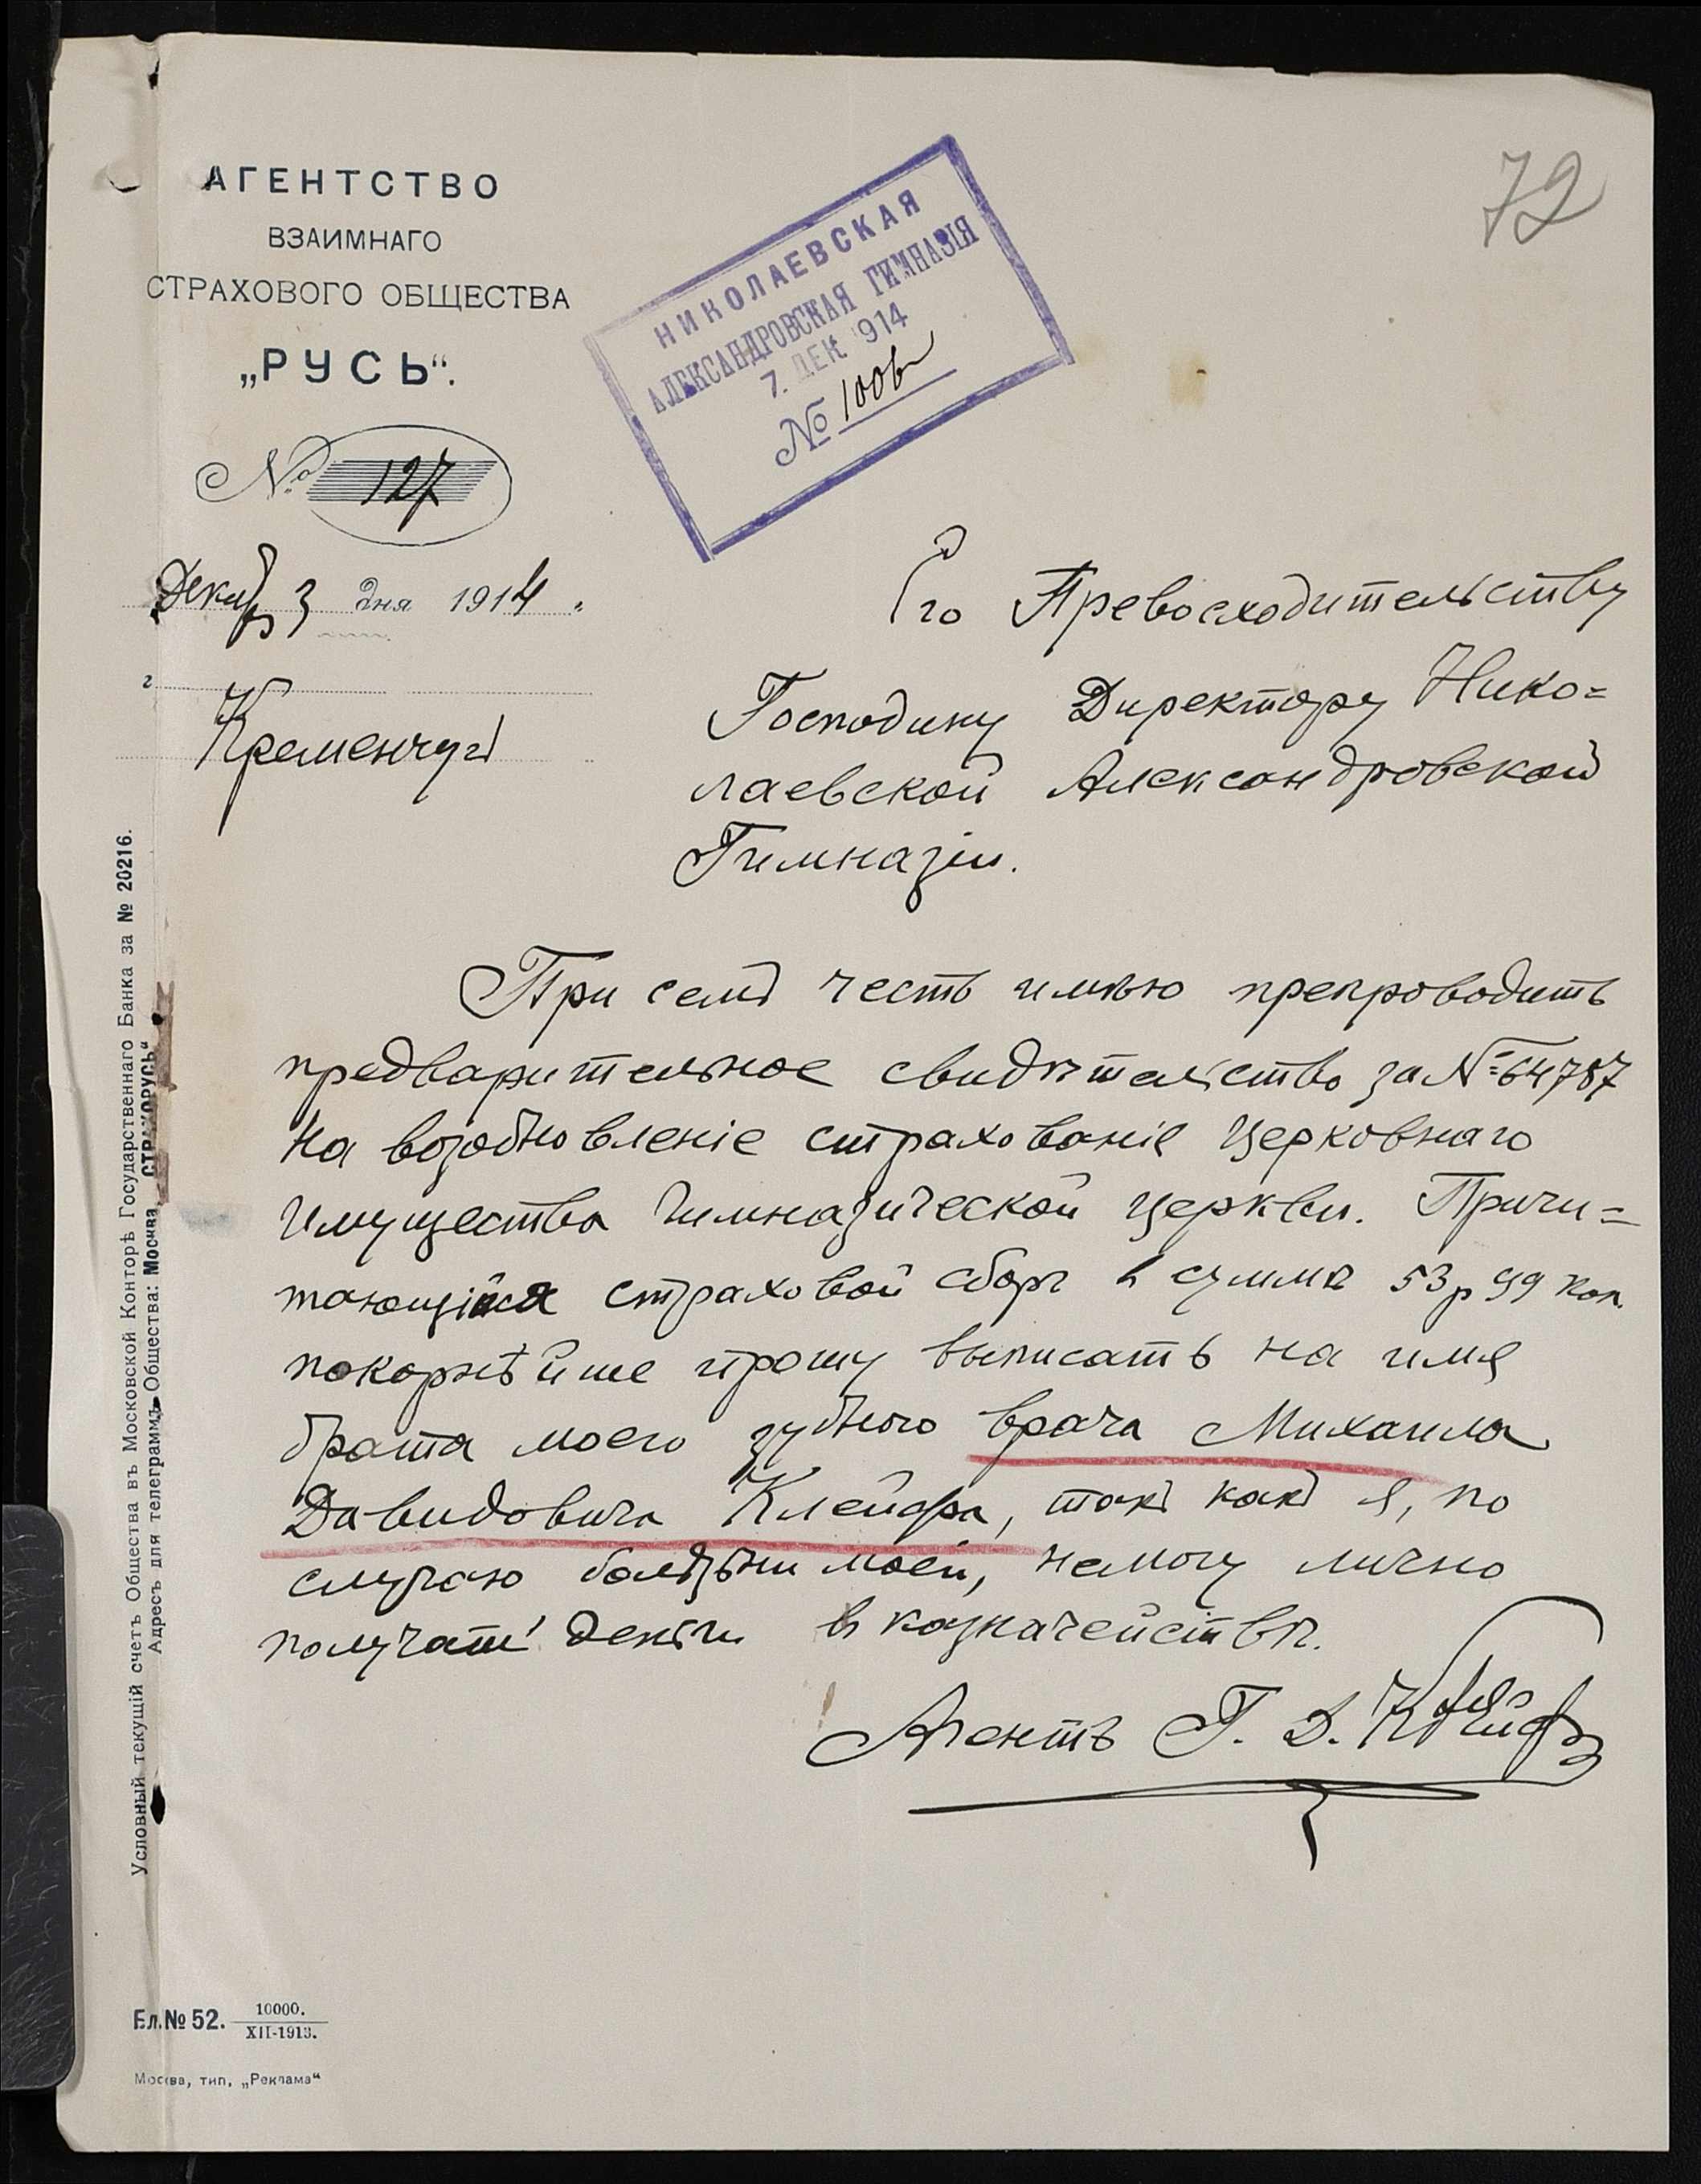 72
АГЕНТСТВО
ВЗАИМНАГО
СТРАХОВОГО ОБЩЕСТВА
„РУСЬ“.
№ 127
Декабр 3 дня 1914 .
г. Кременчугъ
НИКОЛАЕВСКАЯ
АЛЕКСАНДРОВСКАЯ ГИМНАЗІЯ
7. ДЕК 1914
№ 1006
Его Превосходительству
Господину Директору Нико=
лаевской Александровской
Гимназіи.
При семъ честь имѣю препроводить
предварительное свидѣтельство за № 64787
на возобновленіе страхованія церковнаго
имущества гимназической церкви. Причи=
тающійся страховой сборъ в суммѣ 53 р 99 коп.
покорнѣйше прошу выписать на имя
брата моего зубного врача Михаила
Давидовича Клейфа, такъ какъ я, по
случаю болѣзни моей, немогу лично
получать деньги в казначействѣ.
Агентъ Г. Д. Клейф
Условный текущій счетъ Общества въ Московской Конторѣ Государственнаго Банка за № 20216.
Адресъ для телеграммъ Общества: Москва „СТРАХОРУСЬ“
Бл. № 52. 10000.
XII-1913.
Москва, тип. „Реклама“